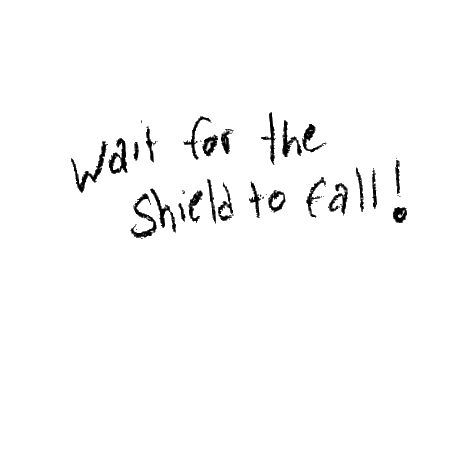 Wait for the
Shield to fall!